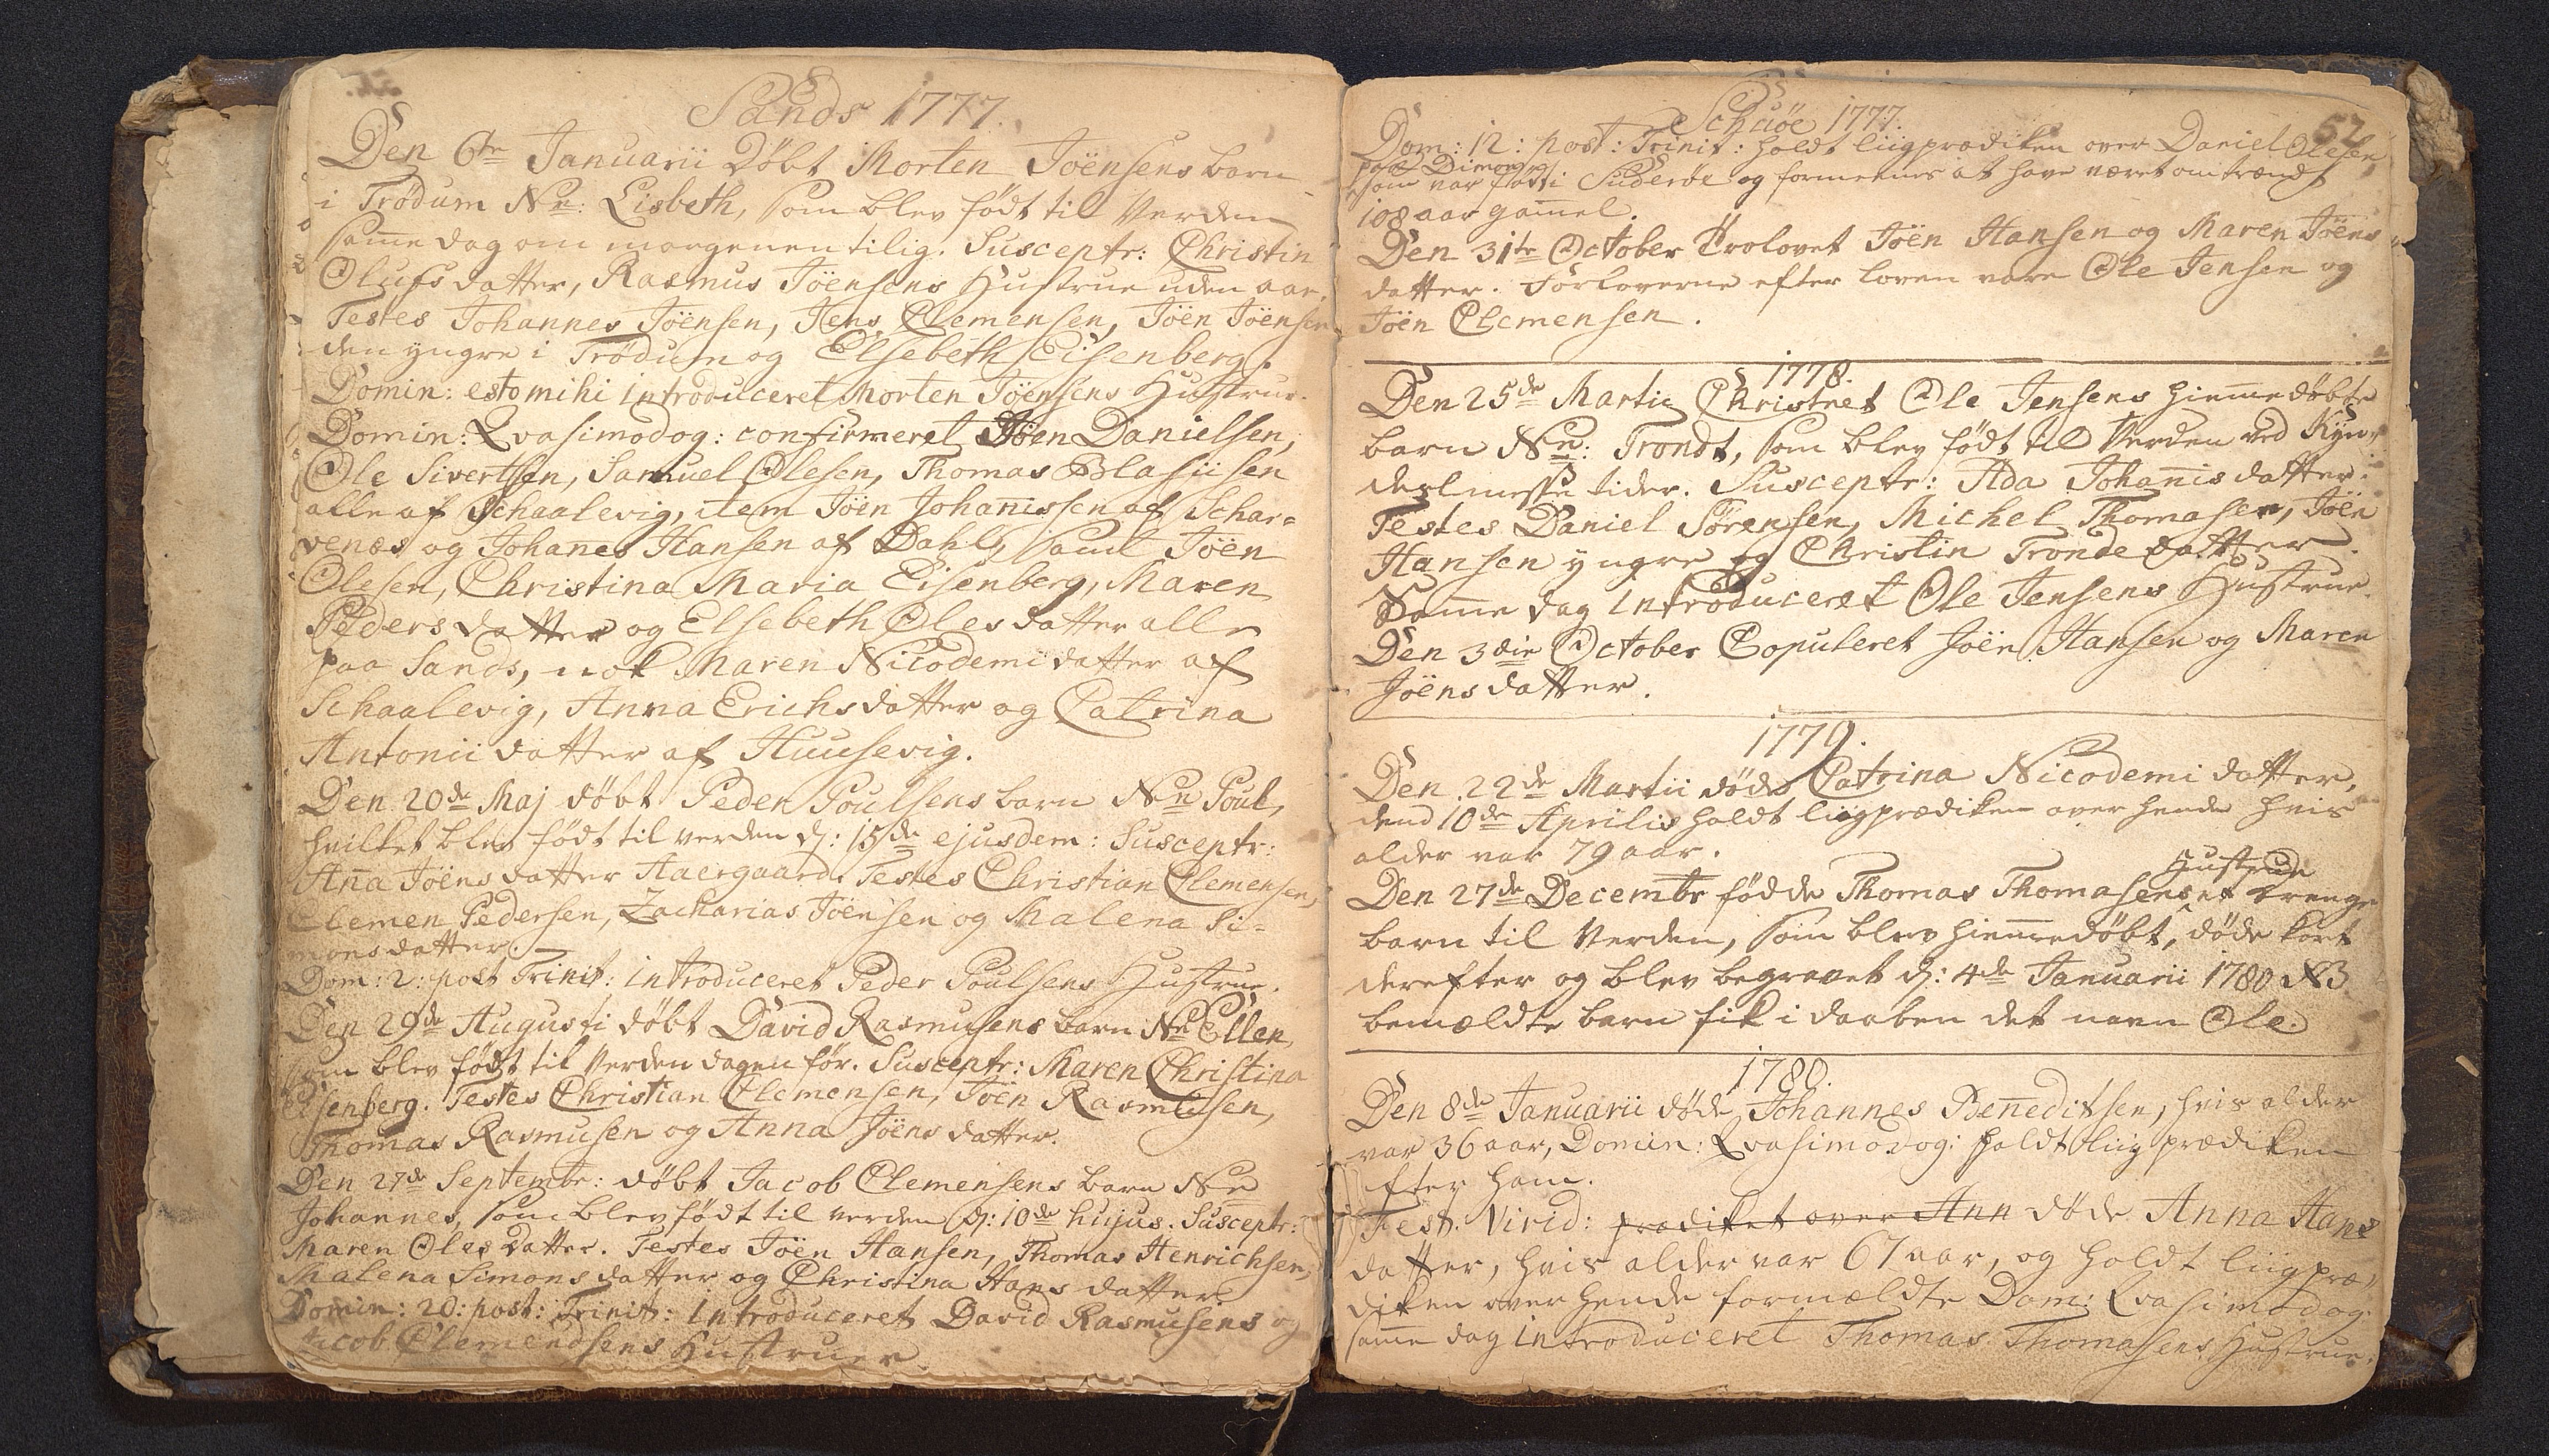 Sands 1777.
Den 6te Januarii Døbt Morten Joënsens barn
i Trødum Nn: Lisbeth, som blev født til Verden
samme dag om morgenen tilig. Susceptr: Christin
Olufsdatter, Rasmus Joënsens Hustrue uden aar.
Testes Johannes Joënsen, Jens Clemensen, Joën Joënsen
den yngre i Trødum og Elsebeth Eisenberg.
Domin: estomihi introduceret Morten Joënsens Hustrue.
Domin: Qvasimodog: confirmeret Joen Danielsen,
Ole Sivertsen, Samuel Olesen, Thomas Blasiisen
alle af Schaalevig, item Joën Johanissen af Schar=
venæs og Johanes Hansen af Dahl, samt Joën
Olesen, Christina Maria Eisenberg, Maren
Pedersdatter og Elsebeth Olesdatter alle
paa Sands, nok Maren Nicodemidatter af
Schaalevig, Anna Erichsdatter og Catrina
Antonii datter af Huusevig.
Den 20de Maj døbt Peder Poulsens barn Nn Poul,
hvilket blev født til verden d: 15de ejusdem: Susceptr:
Ana Joënsdatter Aaergaard. Testes Christian Clemensen,
Clemen Pedersen, Zacharias Joënsen og Malena Si-
monsdatter.
Dom: 2: post Trinit: introduceret Peder Poulsens Hustrue.
Den 29de Augusti døbt David Rasmusens barn Nn Ellen,
som blev født til Verden dagen før. Susceptr: Maren Christina
Eisenberg. Testes Christian Clemensen, Joën Rasmusen,
Thomas Rasmusen og Anna Joënsdatter.
Den 27de Septembr: døbt Jacob Clemensens barn Nn
Johannes, som blev født til verden d: 10de hujus. Susceptr:
Maren Olesdatter. Testes Joën Hansen, Thomas Henrichsen,
Malena Simonsdatter og Christina Hansdatter
Domin: 20: post: Trinit: introduceret David Rasmusens og
Jacob Clemendsens Hustruer.
52
Schuöe 1777.
Dom: 12: post: Trinit: holdt liigprædiken over Daniel Olesen,
paa Dimon
som var født i Suderöe og formeenes at have været omtrendt
108 aar gamel.
Den 31te October Trolovet Joën Hansen og Maren Joëns
datter. Forloverne efter loven vare Ole Jensen og
Joën Clemensen.
1778.
Den 25de Martii Christnet Ole Jensens hiemmedøbte
barn Nn: Trondt, som blev født til Verden ved Kyn-
delmesse tider. Susceptr: Ada Johanisdatter.
Testes Daniel Sørensen, Michel Thomasen, Joën
Hansen yngre og Christin Trondedatter.
Samme dag introduceret Ole Jensens Hustrue.
Den 3die October Copuleret Joën Hansen og Maren
Joënsdatter.
1779.
Den 22de Martii døde Catrina Nicodemi datter,
dend 10de Aprilis holdt liigprædiken over hende hvis
alder var 79 aar.
Hustrue
Den 27de Decembr fødde Thomas Thomasens et drenge
barn til Verden, som blev hiemmedøbt, døde kort
derefter og blev begravet d: 4de Januarii 1780 NB
bemældte barn fik i daaben det navn Ole.
1780.
Den 8de Januarii døde Johannes Beneditsen, hvis alder
var 36 aar, Domin: Qvasimodog: holdt liigprædiken
efter ham.
Fest: Virid: prædiket over Ann døde Anna Hans
datter, hvis alder var 67 aar, og holdt liigpræ-
diken over hende formældte Dom: Qvasimodog
samme dag introduceret Thomas Thomasens Hustrue.